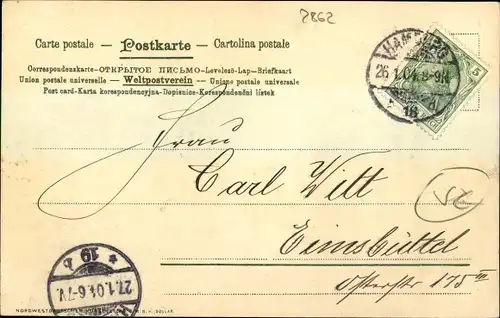 2862
Carte postale — Postkarte — Cartolina postale
Correspondenzkarte - ОТКРЫТОЕ ПИСЬМО - Levelező-Lap - Briefkaart
Union postale universelle - Weltpostverein - Unione postale universale
Post card - Karta korespondencyjna - Dopisnice - Korespondenční lístek
HAMBURG
26.1.04.8-9N
5
Frau
Carl Witt
Eimsbüttel
Osterstr 175
27.1.04.6-7V.